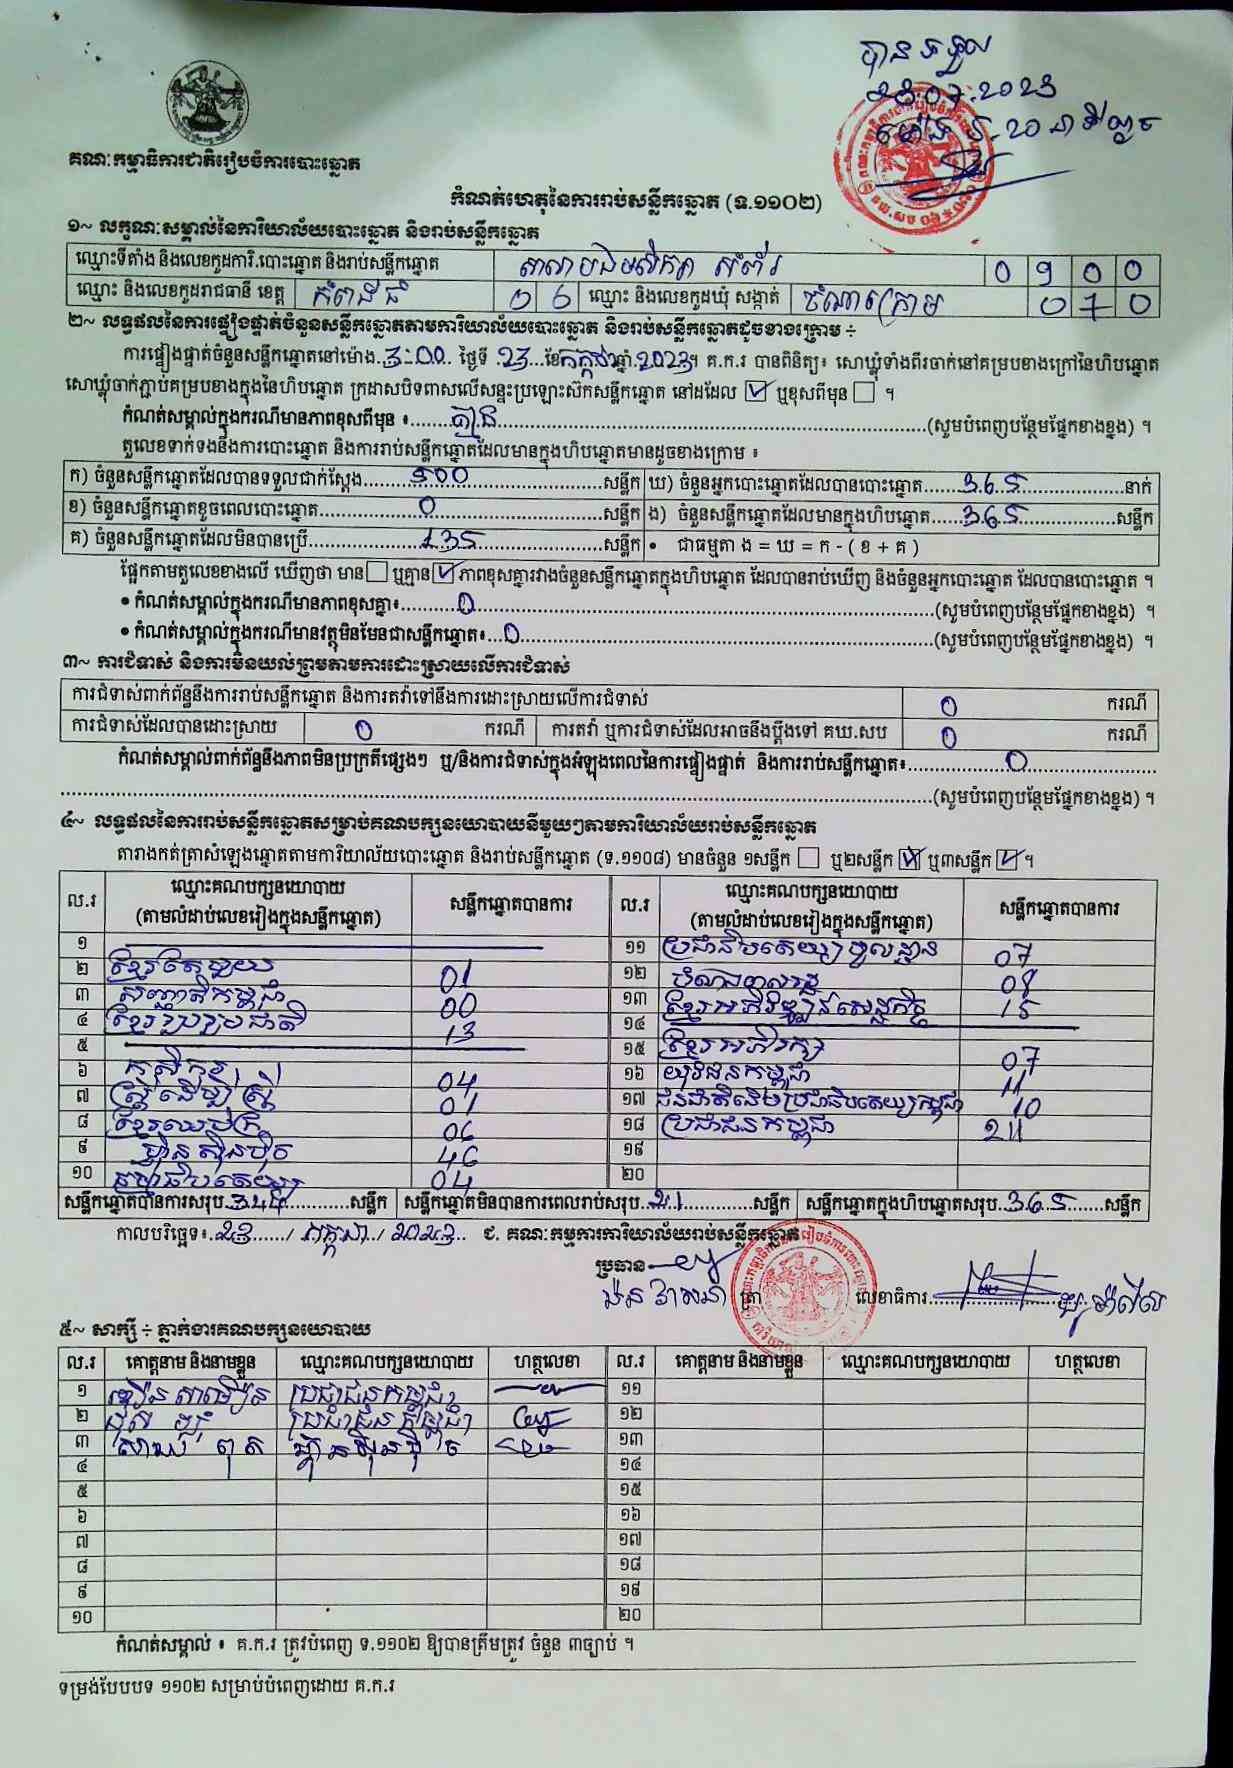 បានទទួល
23.07.2023
គណៈកម្មាធិការជាតិរៀបចំការបោះឆ្នោត
កំណត់ហេតុនៃការរាប់សន្លឹកឆ្នោត (ទ.១១០២)
១~ លក្ខណៈសម្គាល់នៃការិយាល័យបោះឆ្នោត និងរាប់សន្លឹកឆ្នោត
ឈ្មោះទីតាំង និងលេខកូដការិ.បោះឆ្នោត និងរាប់សន្លឹកឆ្នោត 0 9 0 0
ឈ្មោះ និងលេខកូដរាជធានី ខេត្ត កំពង់ធំ 0 6 ឈ្មោះ និងលេខកូដឃុំ សង្កាត់ ចំណារក្រោម 0 7 0
២~ លទ្ធផលនៃការផ្ទៀងផ្ទាត់ចំនួនសន្លឹកឆ្នោតតាមការិយាល័យបោះឆ្នោត និងរាប់សន្លឹកឆ្នោតដូចខាងក្រោម ÷
ការផ្ទៀងផ្ទាត់ចំនួនសន្លឹកឆ្នោតនៅម៉ោង..3:00.. ថ្ងៃទី .23...ខែកក្កដាឆ្នាំ.2023។ គ.ក.រ បានពិនិត្យ៖ សោឃ្លុំទាំងពីរចាក់នៅគម្របខាងក្រៅនៃហិបឆ្នោត
សោឃ្លុំចាក់ភ្ជាប់គម្របខាងក្នុងនៃហិបឆ្នោត ក្រដាសបិទពាសលើសន្ទះប្រឡោះស៊កសន្លឹកឆ្នោត នៅដដែល ☑ ឬខុសពីមុន ☐ ។
កំណត់សម្គាល់ក្នុងករណីមានភាពខុសពីមុន ៖.......គ្មាន.......(សូមបំពេញបន្ថែមផ្នែកខាងខ្នង) ។
តួលេខទាក់ទងនឹងការបោះឆ្នោត និងការរាប់សន្លឹកឆ្នោតដែលមានក្នុងហិបឆ្នោតមានដូចខាងក្រោម ៖
ក) ចំនួនសន្លឹកឆ្នោតដែលបានទទួលជាក់ស្តែង.......500.......សន្លឹក ឃ) ចំនួនអ្នកបោះឆ្នោតដែលបានបោះឆ្នោត.......365.......នាក់
ខ) ចំនួនសន្លឹកឆ្នោតខូចពេលបោះឆ្នោត.......0.......សន្លឹក ង) ចំនួនសន្លឹកឆ្នោតដែលមានក្នុងហិបឆ្នោត.......365.......សន្លឹក
គ) ចំនួនសន្លឹកឆ្នោតដែលមិនបានប្រើ.......135.......សន្លឹក • ជាធម្មតា ង = ឃ = ក - ( ខ + គ )
ផ្អែកតាមតួលេខខាងលើ ឃើញថា មាន☐ ឬគ្មាន☑ ភាពខុសគ្នារវាងចំនួនសន្លឹកឆ្នោតក្នុងហិបឆ្នោត ដែលបានរាប់ឃើញ និងចំនួនអ្នកបោះឆ្នោត ដែលបានបោះឆ្នោត ។
• កំណត់សម្គាល់ក្នុងករណីមានភាពខុសគ្នា៖.......0.......(សូមបំពេញបន្ថែមផ្នែកខាងខ្នង) ។
• កំណត់សម្គាល់ក្នុងករណីមានវត្ថុមិនមែនជាសន្លឹកឆ្នោត៖...0.......(សូមបំពេញបន្ថែមផ្នែកខាងខ្នង) ។
៣~ ការជំទាស់ និងការមិនយល់ព្រមតាមការដោះស្រាយលើការជំទាស់
ការជំទាស់ពាក់ព័ន្ធនឹងការរាប់សន្លឹកឆ្នោត និងការតវ៉ាទៅនឹងការដោះស្រាយលើការជំទាស់ 0 ករណី
ការជំទាស់ដែលបានដោះស្រាយ 0 ករណី ការតវ៉ា ឬការជំទាស់ដែលអាចនឹងប្តឹងទៅ គឃ.សប 0 ករណី
កំណត់សម្គាល់ពាក់ព័ន្ធនឹងភាពមិនប្រក្រតីផ្សេងៗ ឬ/និងការជំទាស់ក្នុងអំឡុងពេលនៃការផ្ទៀងផ្ទាត់ និងការរាប់សន្លឹកឆ្នោត៖.......0.......
.......(សូមបំពេញបន្ថែមផ្នែកខាងខ្នង) ។
៤~ លទ្ធផលនៃការរាប់សន្លឹកឆ្នោតសម្រាប់គណបក្សនយោបាយនីមួយៗតាមការិយាល័យរាប់សន្លឹកឆ្នោត
តារាងកត់ត្រាសំឡេងឆ្នោតតាមការិយាល័យបោះឆ្នោត និងរាប់សន្លឹកឆ្នោត (ទ.១១០៨) មានចំនួន ១សន្លឹក ☐ ឬ២សន្លឹក ☑ ឬ៣សន្លឹក ☑ ។
ល.រ ឈ្មោះគណបក្សនយោបាយ (តាមលំដាប់លេខរៀងក្នុងសន្លឹកឆ្នោត) សន្លឹកឆ្នោតបានការ ល.រ ឈ្មោះគណបក្សនយោបាយ (តាមលំដាប់លេខរៀងក្នុងសន្លឹកឆ្នោត) សន្លឹកឆ្នោតបានការ
១ ១១ ប្រជាធិបតេយ្យមូលដ្ឋាន 07
២ ខ្មែរតែមួយ 01 ១២ 08
៣ សញ្ជាតិកម្ពុជា 00 ១៣ ខ្មែរអភិវឌ្ឍន៍សេដ្ឋកិច្ច 15
៤ ខ្មែររួបរួមជាតិ 13 ១៤
៥ ១៥ ខ្មែរអភិរក្ស 07
៦ កសិករ 04 ១៦ យុវជនកម្ពុជា 11
៧ ស្ត្រីដើម្បីស្ត្រី 01 ១៧ ជនជាតិដើមប្រជាធិបតេយ្យកម្ពុជា 10
៨ ខ្មែរឈប់ក្រ 06 ១៨ ប្រជាជនកម្ពុជា 211
៩ ហ៊្វុនស៊ិនប៉ិច 46 ១៩
១០ ធម្មាធិបតេយ្យ 04 ២០
សន្លឹកឆ្នោតបានការសរុប.344.......សន្លឹក សន្លឹកឆ្នោតមិនបានការពេលរាប់សរុប..21.......សន្លឹក សន្លឹកឆ្នោតក្នុងហិបឆ្នោតសរុប.365.......សន្លឹក
កាលបរិច្ឆេទ៖.23....../ កក្កដា../ 2023.. ជ. គណៈកម្មការការិយាល័យរាប់សន្លឹកឆ្នោត
ប្រធាន
ត្រា លេខាធិការ
៥~ សាក្សី ÷ ភ្នាក់ងារគណបក្សនយោបាយ
ល.រ គោត្តនាម និងនាមខ្លួន ឈ្មោះគណបក្សនយោបាយ ហត្ថលេខា ល.រ គោត្តនាម និងនាមខ្លួន ឈ្មោះគណបក្សនយោបាយ ហត្ថលេខា
១ ប្រជាជនកម្ពុជា ១១
២ ប្រជាជនកម្ពុជា ១២
៣ ហ៊្វុនស៊ិនប៉ិច ១៣
៤ ១៤
៥ ១៥
៦ ១៦
៧ ១៧
៨ ១៨
៩ ១៩
១០ ២០
កំណត់សម្គាល់ ៖ គ.ក.រ ត្រូវបំពេញ ទ.១១០២ ឱ្យបានត្រឹមត្រូវ ចំនួន ៣ច្បាប់ ។
ទម្រង់បែបបទ ១១០២ សម្រាប់បំពេញដោយ គ.ក.រ